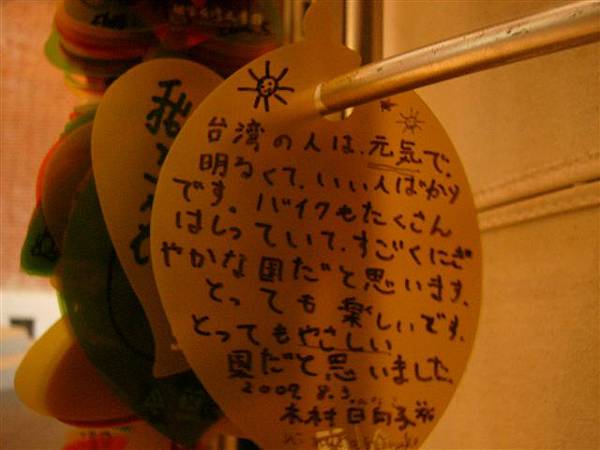 台湾の人は、元気で、
明るくて、いい人ばかり
です。バイクもたくさん
はしっていて、すごくにぎ
やかな国だと思います。
とっても楽しいです。
とってもやさしい
国だと思いました。
2009 8.3
木村日向子
我